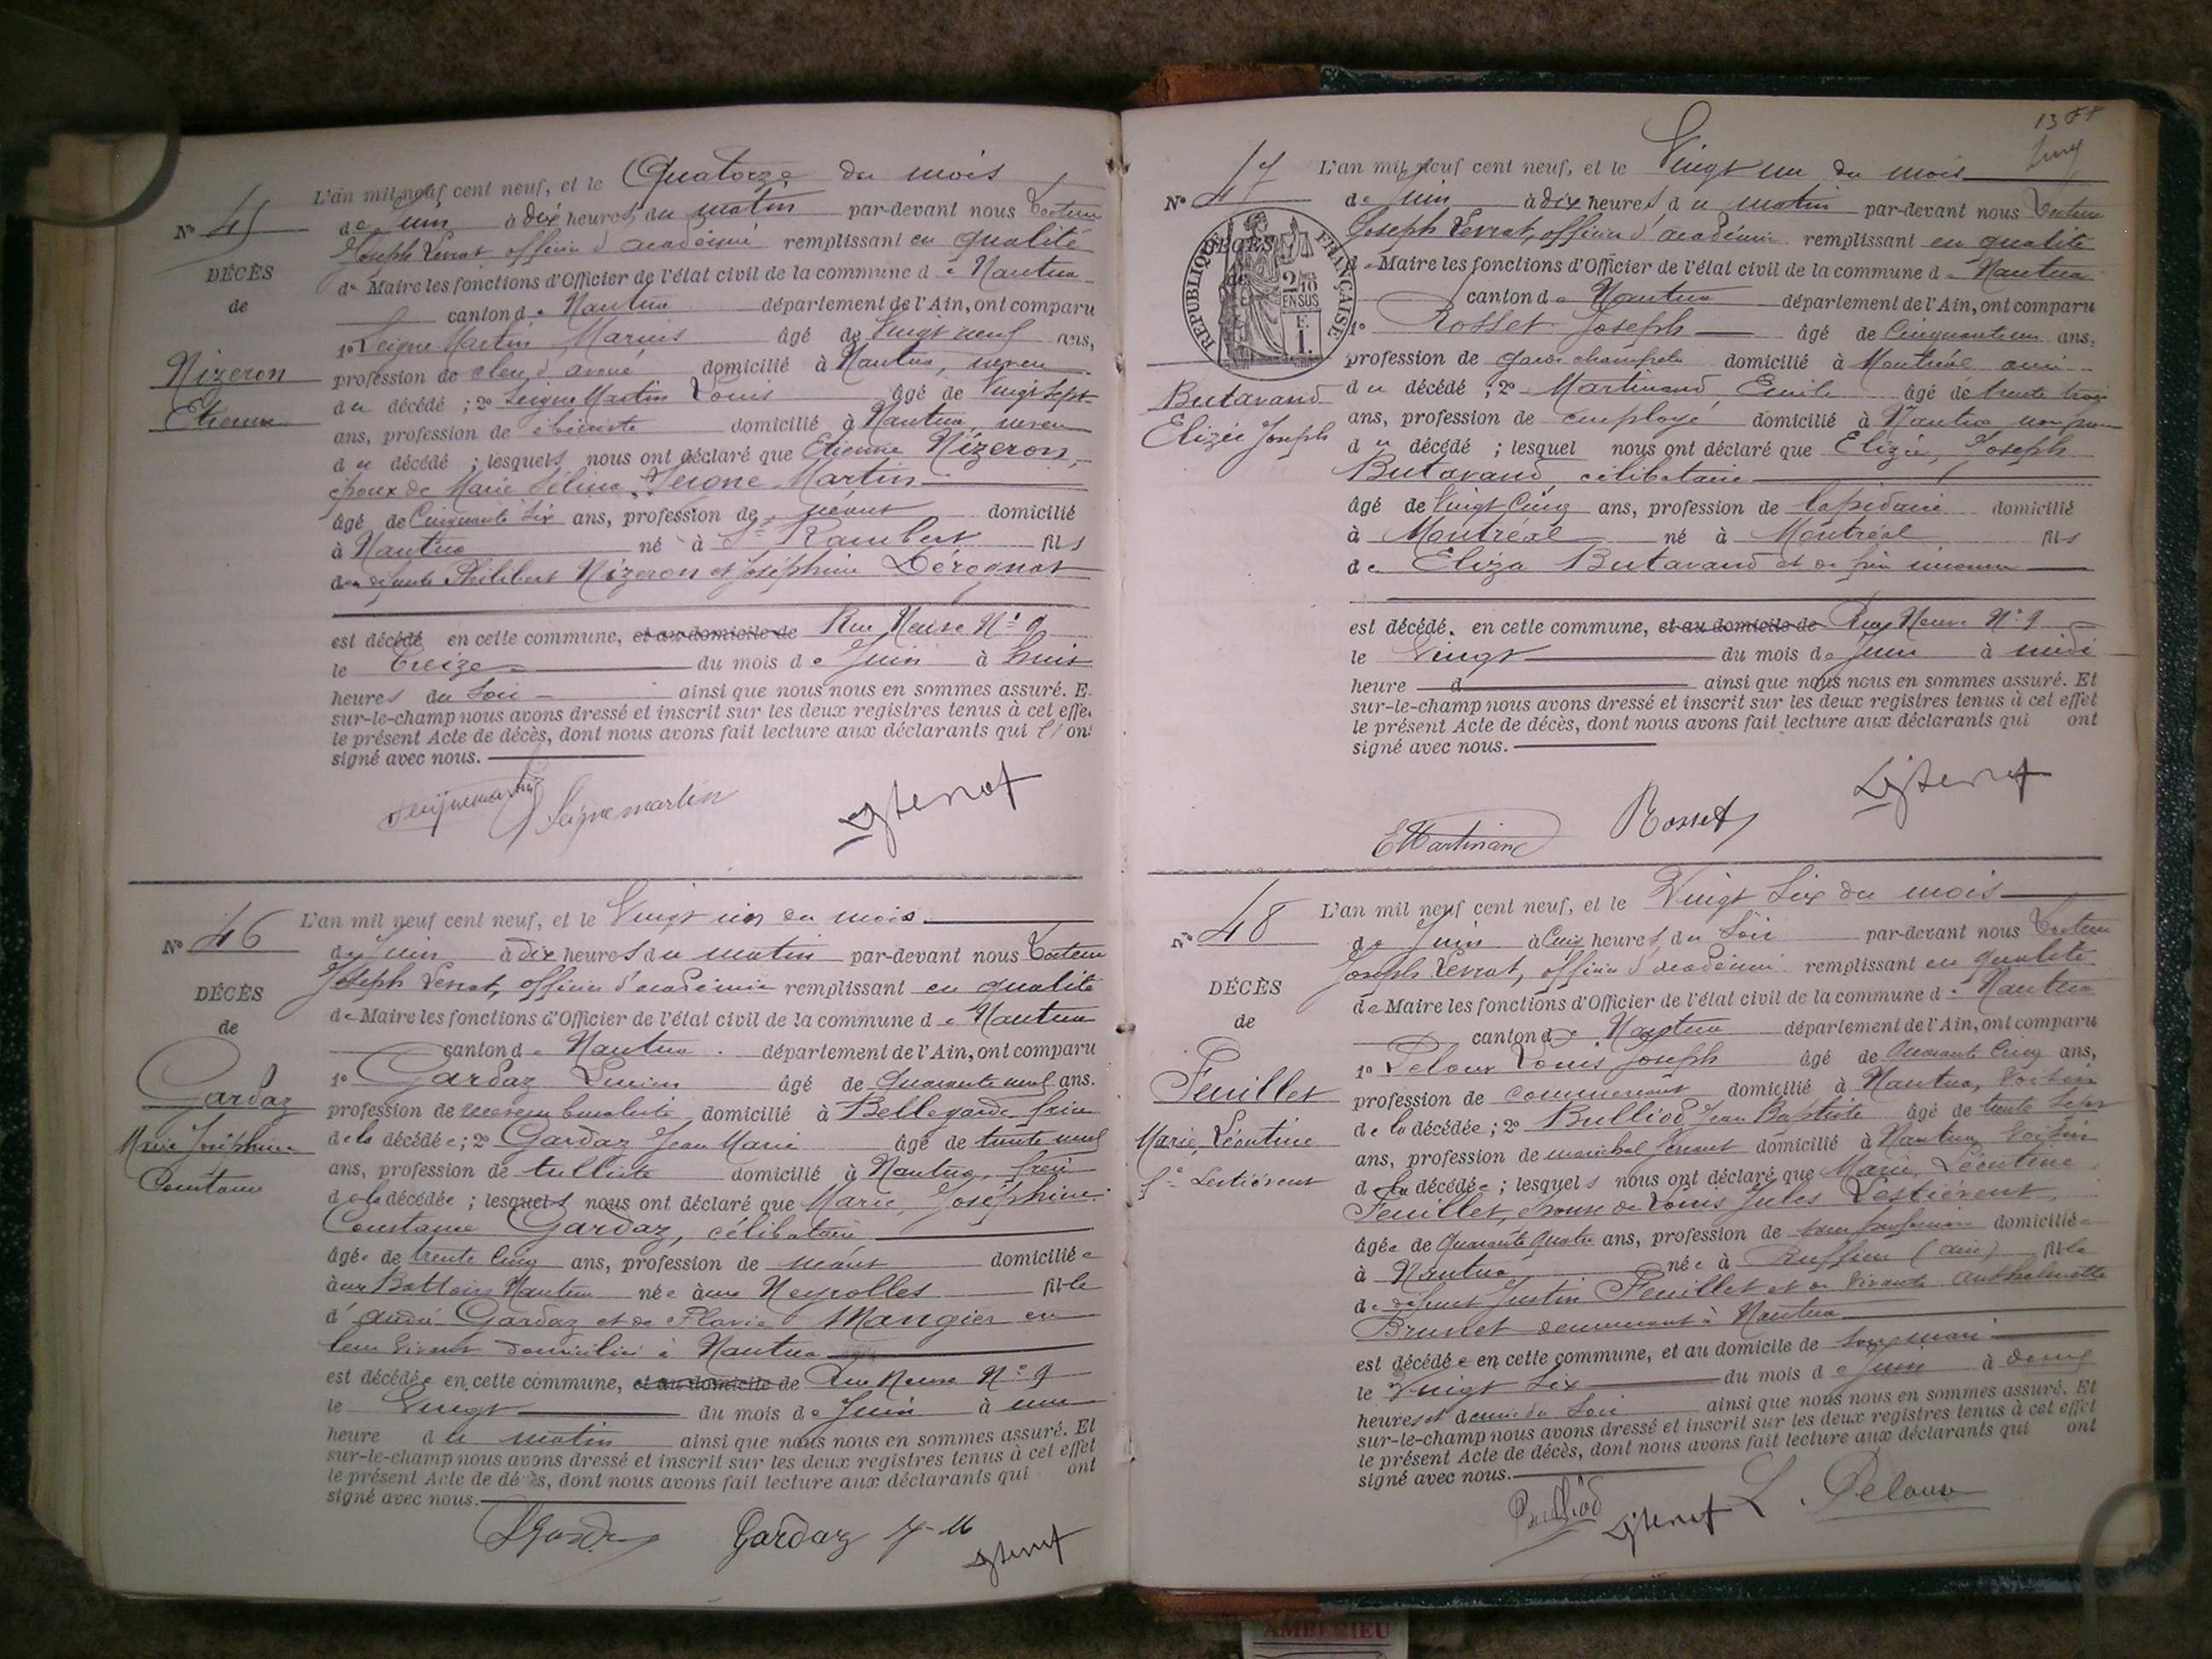 L'an mil neuf cent neuf, et le Quatorze du mois
de Juin à dix heures du matin par-devant nous Docteur
Joseph Levrat officier d'académie remplissant en qualité
de Maire les fonctions d'Officier de l'état civil de la commune de Nantua
canton de Nantua département de l'Ain, ont comparu
1º Seigne Martin Marius âgé de Vingt neuf ans,
profession de clerc d'avoué domicilié à Nantua, neveu
du décédé ; 2º Seigne Martin Louis âgé de Vingt sept
ans, profession de ébéniste domicilié à Nantua, neveu
du décédé ; lesquels nous ont déclaré que Etienne Nizeron,
époux de Marie Célina Seigne Martin
âgé de Cinquante six ans, profession de néant domicilié
à Nantua né à St Rambert fils
de défunts Philibert Nizeron et Joséphine Dérognat
est décédé en cette commune, et au domicile de Rue Neuve Nº 9
le Treize du mois de Juin à huit
heures du soir ainsi que nous nous en sommes assuré. E
sur-le-champ nous avons dressé et inscrit sur les deux registres tenus à cet effe
le présent Acte de décès, dont nous avons fait lecture aux déclarants qui ont
signé avec nous.
Nº 45
DÉCÈS
de
Nizeron
Etienne
Seignemartin
Seignemartin
L'an mil neuf cent neuf, et le Vingt un du mois
de Juin à dix heures du matin par-devant nous Docteur
Joseph Levrat, officier d'académie remplissant en qualité
de Maire les fonctions d'Officier de l'état civil de la commune de Nantua
canton de Nantua département de l'Ain, ont comparu
1º Gardaz Lucien âgé de Quarante neuf ans.
profession de domicilié à Bellegarde, frère
de la décédée ; 2º Gardaz Jean Marie âgé de trente neuf
ans, profession de tulliste domicilié à Nantua, frère
de la décédée ; lesquels nous ont déclaré que Marie, Joséphine
Constance Gardaz, célibataire
âgée de trente cinq ans, profession de néant domiciliée
aux Battoirs Nantua née aux Neyrolles fille
d'André Gardaz et de Flavie Mangier en
leur vivant domiciliés à Nantua
est décédée en cette commune, et au domicile de Rue Neuve Nº 9
le Vingt du mois de Juin à une
heure du matin ainsi que nous nous en sommes assuré. Et
sur-le-champ nous avons dressé et inscrit sur les deux registres tenus à cet effet
le présent Acte de décès, dont nous avons fait lecture aux déclarants qui ont
signé avec nous.
Nº 46
DÉCÈS
de
Gardaz
Marie Joséphine
Constance
Gardaz J-M
L'an mil neuf cent neuf, et le Vingt un du mois
de Juin à dix heures du matin par-devant nous Docteur
Joseph Levrat, officier d'académie remplissant en qualité
de Maire les fonctions d'Officier de l'état civil de la commune de Nantua
canton de Nantua département de l'Ain, ont comparu
1º Rosset Joseph âgé de Cinquante un ans,
profession de garde champêtre domicilié à Montréal ami
du décédé ; 2º Martinand, Emile âgé de trente trois
ans, profession de employé domicilié à Nantua non parent
du décédé ; lesquel nous ont déclaré que Elizée, Joseph
Butavand, célibataire
âgé de Vingt Cinq ans, profession de lapidaire domicilié
à Montréal né à Montréal fils
de Eliza Butavand et de père inconnu
est décédé. en cette commune, et au domicile de Rue Neuve Nº 9
le Vingt du mois de Juin à midi
heure d ainsi que nous nous en sommes assuré. Et
sur-le-champ nous avons dressé et inscrit sur les deux registres tenus à cet effet
le présent Acte de décès, dont nous avons fait lecture aux déclarants qui ont
signé avec nous.
Nº 47
DÉCÈS
de
RÉPUBLIQUE FRANÇAISE
2/10
EN SUS
F.
1.
Butavand
Elizée Joseph
E Martinand
Rosset
L'an mil neuf cent neuf, et le Vingt Six du mois
de Juin à Cinq heures du Soir par-devant nous Docteur
Joseph Levrat, officier d'académie remplissant en qualité
de Maire les fonctions d'Officier de l'état civil de la commune de Nantua
canton de Nantua département de l'Ain, ont comparu
1º Deloux Louis Joseph âgé de Quarante Cinq ans,
profession de commerçant domicilié à Nantua, Voisin
de la décédée ; 2º Bulliod Jean Baptiste âgé de trente sept
ans, profession de maréchal ferrant domicilié à Nantua Voisin
de la décédée ; lesquels nous ont déclaré que Marie, Léontine
Feuillet, épouse de Louis Jules Lestiévent,
âgée de Quarante Quatre ans, profession de sans profession domiciliée
à Nantua née à Ruffieu (Ain) fille
de défunt Justin Feuillet et de vivante Anthelmette
Brunet demeurant à Nantua
est décédée en cette commune, et au domicile de son mari
le Vingt Six du mois de Juin à deux
heures et demie du Soir ainsi que nous nous en sommes assuré. Et
sur-le-champ nous avons dressé et inscrit sur les deux registres tenus à cet effet
le présent Acte de décès, dont nous avons fait lecture aux déclarants qui ont
signé avec nous.
Nº 48
DÉCÈS
de
Feuillet
Marie, Léontine
fe Lestiévent
Bulliod
L. Deloux